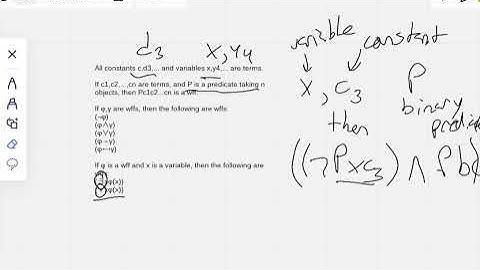 d3 x, y4
variable constant
All constants c,d3,... and variables x,y4,... are terms.
If c1,c2,...,cn are terms, and P is a predicate taking n
objects, then Pc1c2...cn is a wff.
x, c3 P
binary
then
If φ,y are wffs, then the following are wffs:
(¬φ)
(φ∧y)
(φ∨y)
(φ→y)
(φ↔y)
((¬Pxc3) ∧ Pb
If φ is a wff and x is a variable, then the following are
φ(x))
φ(x))